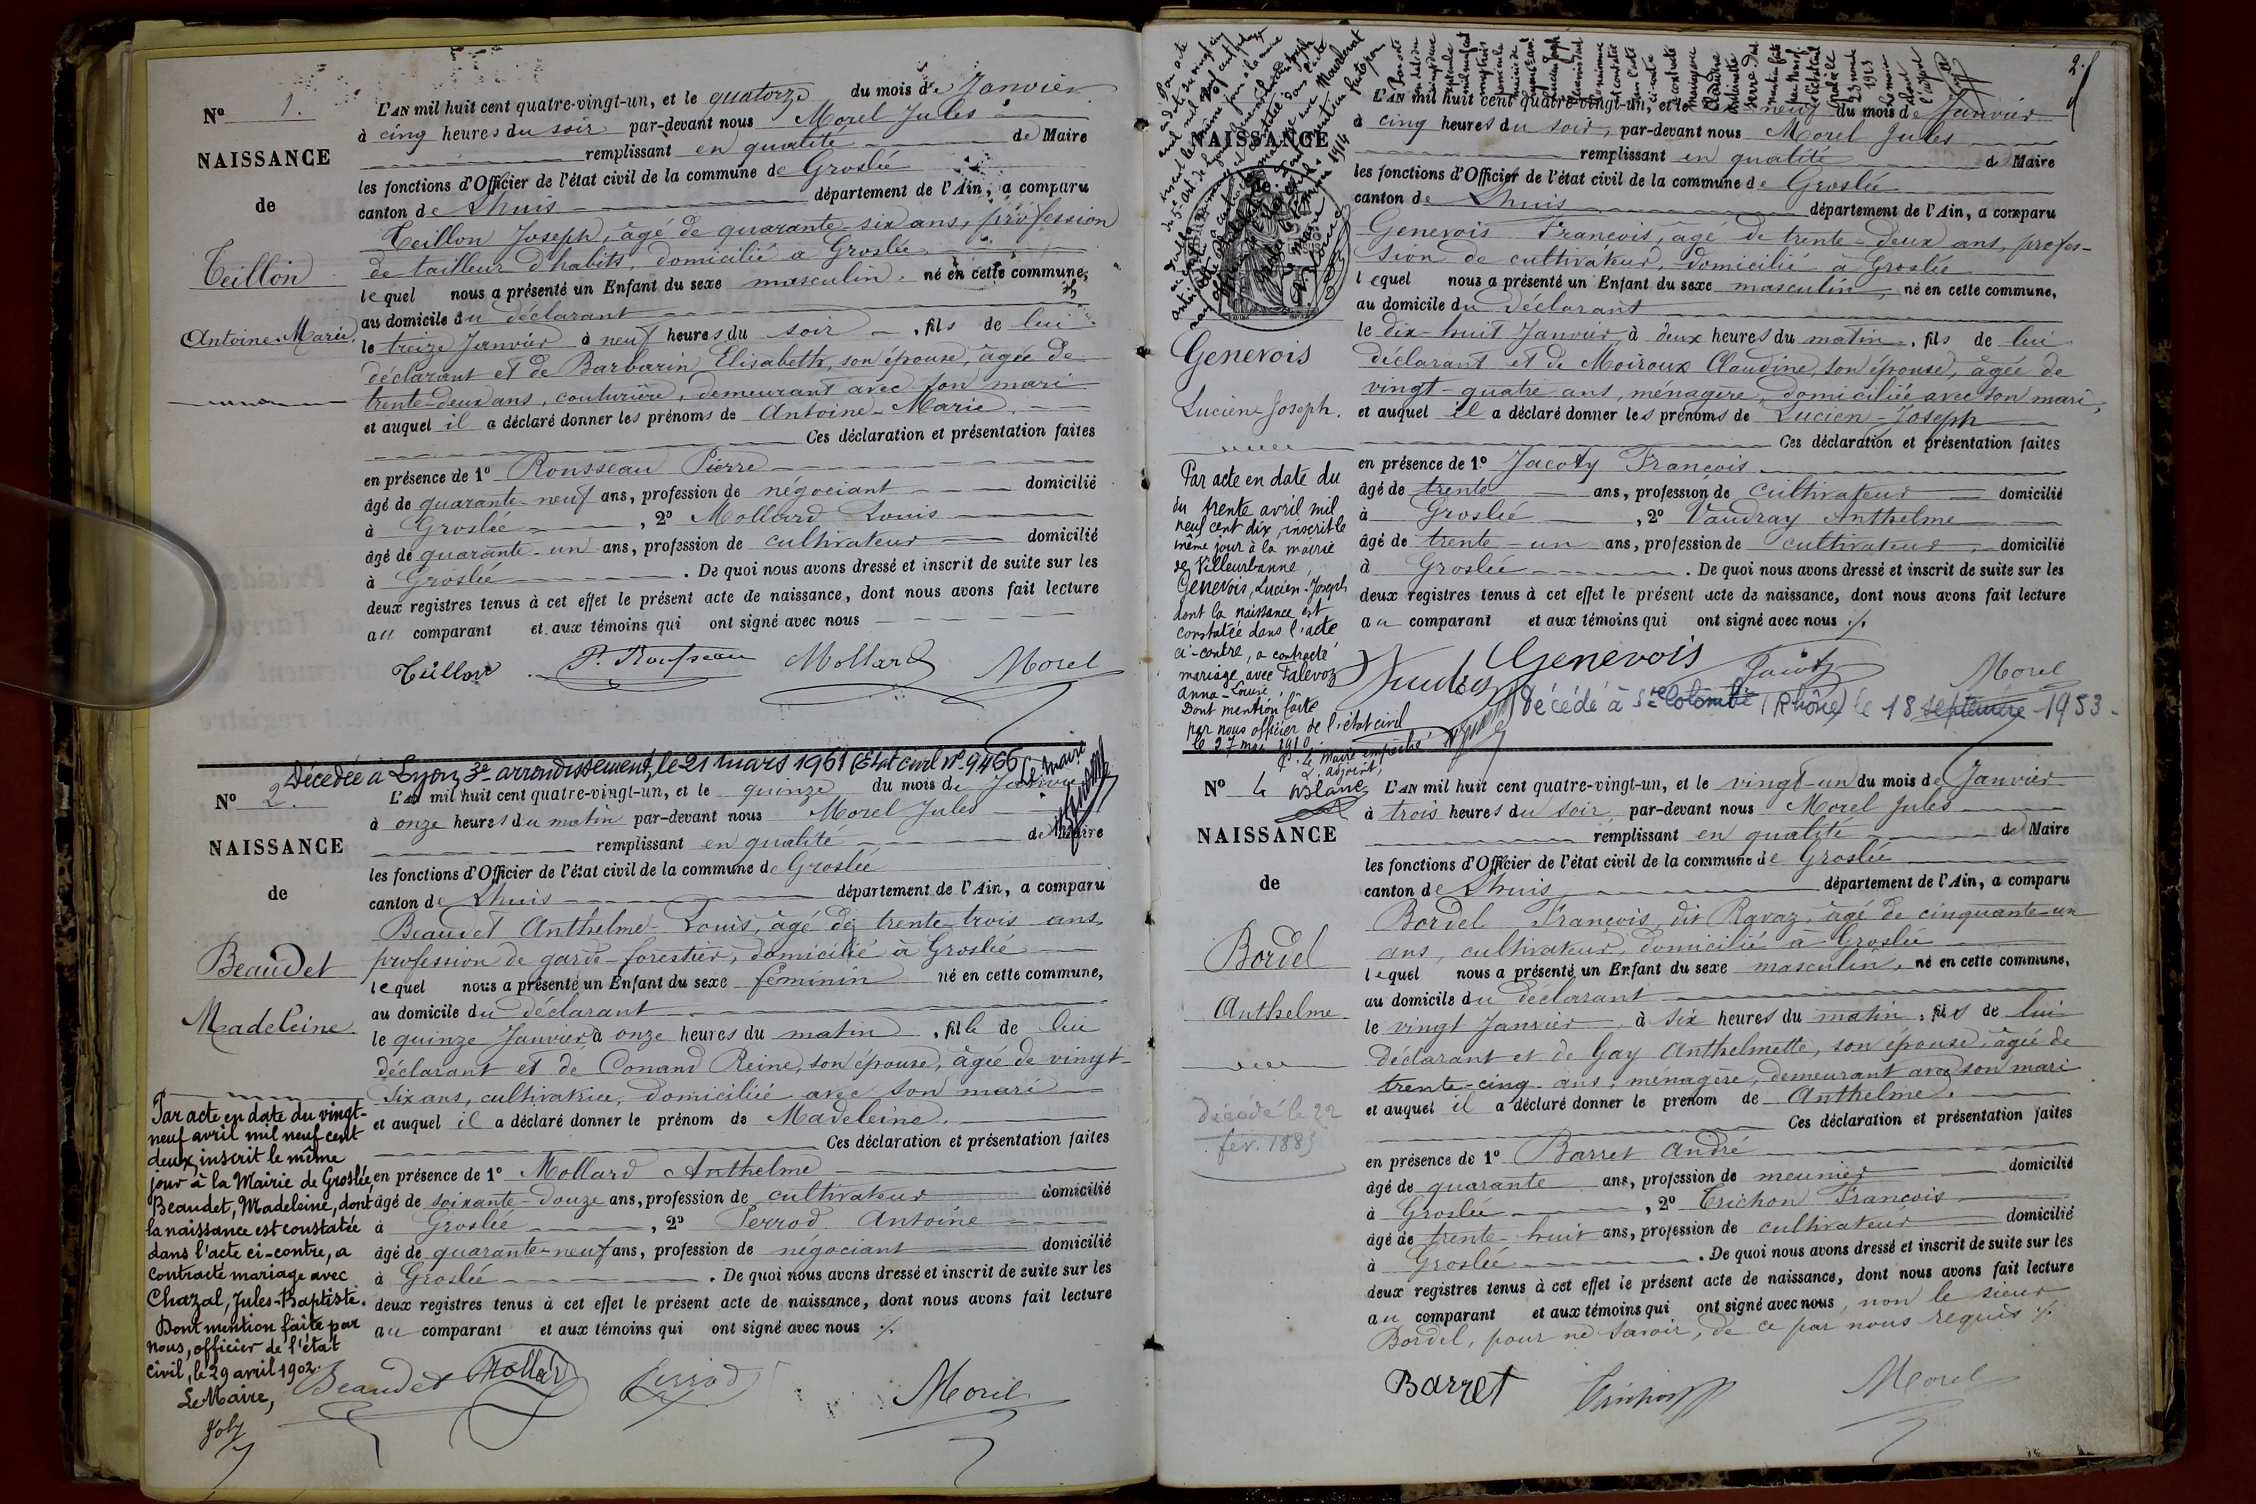 No 1.
NAISSANCE
de
Teillon
Antoine-Marie.
L'AN mil huit cent quatre-vingt-un, et le quatorze du mois de Janvier
à cinq heures du soir par-devant nous Morel Jules
remplissant en qualité de Maire
les fonctions d'Officier de l'état civil de la commune de Groslée
canton de Lhuis département de l'Ain, a comparu
Teillon Joseph, âgé de quarante-six ans, profession
de tailleur d'habits, domicilié à Groslée
lequel nous a présenté un Enfant du sexe masculin. né en cette commune,
au domicile du déclarant
le treize Janvier à neuf heures du soir, fils de lui
déclarant et de Barbarin Elisabeth, son épouse, âgée de
trente-deux ans, couturière, demeurant avec son mari
et auquel il a déclaré donner les prénoms de Antoine-Marie.
Ces déclaration et présentation faites
en présence de 1º Rousseau Pierre
âgé de quarante-neuf ans, profession de négociant domicilié
à Groslée, 2º Mollard Louis
âgé de quarante-un ans, profession de cultivateur domicilié
à Groslée. De quoi nous avons dressé et inscrit de suite sur les
deux registres tenus à cet effet le présent acte de naissance, dont nous avons fait lecture
au comparant et aux témoins qui ont signé avec nous
Teillon P. Rousseau Mollard Morel
Décédée à Lyon 3e arrondissement, le 21 mars 1961 (Etat civil nº 9466 Le Maire
No 2.
NAISSANCE
de
Beaudet
Madeleine
L'AN mil huit cent quatre-vingt-un, et le quinze du mois de Janvier
à onze heures du matin par-devant nous Morel Jules
remplissant en qualité de Maire
les fonctions d'Officier de l'état civil de la commune de Groslée
canton de Lhuis département de l'Ain, a comparu
Beaudet Anthelme-Louis, âgé de trente-trois ans,
profession de garde-forestier, domicilié à Groslée
lequel nous a présenté un Enfant du sexe féminin né en cette commune,
au domicile du déclarant
le quinze Janvier à onze heures du matin, fille de lui
déclarant et de Conand Reine, son épouse, âgée de vingt-
six ans, cultivatrice, domiciliée avec son mari
et auquel il a déclaré donner le prénom de Madeleine.
Ces déclaration et présentation faites
en présence de 1º Mollard Anthelme
âgé de soixante-douze ans, profession de cultivateur domicilié
à Groslée, 2º Perrod Antoine
âgé de quarante-neuf ans, profession de négociant domicilié
à Groslée. De quoi nous avons dressé et inscrit de suite sur les
deux registres tenus à cet effet le présent acte de naissance, dont nous avons fait lecture
au comparant et aux témoins qui ont signé avec nous
Par acte en date du vingt-
neuf avril mil neuf cent
deux, inscrit le même
jour à la Mairie de Groslée,
Beaudet, Madeleine, dont
la naissance est constatée
dans l'acte ci-contre, a
contracté mariage avec
Chazal, Jules-Baptiste.
Dont mention faite par
nous, officier de l'état
civil, le 29 avril 1902.
Le Maire,
Beaudet Mollard Perrod Morel
2.
NAISSANCE
de
Genevois
Lucien-Joseph.
L'AN mil huit cent quatre-vingt-un, et le neuf du mois de Janvier
à cinq heures du soir, par-devant nous Morel Jules
remplissant en qualité de Maire
les fonctions d'Officier de l'état civil de la commune de Groslée
canton de Lhuis département de l'Ain, a comparu
Genevois François, âgé de trente-deux ans, profes-
sion de cultivateur, domicilié à Groslée
lequel nous a présenté un Enfant du sexe masculin, né en cette commune,
au domicile du déclarant
le dix-huit Janvier, à deux heures du matin, fils de lui
déclarant et de Moiroux Claudine, son épouse, âgée de
vingt-quatre ans, ménagère, domiciliée avec son mari,
et auquel il a déclaré donner les prénoms de Lucien-Joseph
Ces déclaration et présentation faites
en présence de 1º Jacoty François
âgé de trente ans, profession de cultivateur domicilié
à Groslée, 2º Vaudray Anthelme
âgé de trente-un ans, profession de cultivateur, domicilié
à Groslée. De quoi nous avons dressé et inscrit de suite sur les
deux registres tenus à cet effet le présent acte de naissance, dont nous avons fait lecture
au comparant et aux témoins qui ont signé avec nous
Par acte en date du
du trente avril mil
neuf cent dix, inscrit le
même jour à la mairie
de Villeurbanne,
Genevois, Lucien-Joseph
dont la naissance est
constatée dans l'acte
ci-contre, a contracté
mariage avec Falevoz
Anna-Louise
Dont mention faite
par nous officier de l'état civil
le 27 mai 1910
P. le Maire empêché
L'adjoint,
Genevois Morel
Décédé à Ste Colombe (Rhône) le 18 septembre 1953.
No 4
NAISSANCE
de
Bordel
Anthelme
décédé le 22
fév. 1885
L'AN mil huit cent quatre-vingt-un, et le vingt-un du mois de Janvier
à trois heures du soir, par-devant nous Morel Jules
remplissant en qualité de Maire
les fonctions d'Officier de l'état civil de la commune de Groslée
canton de Lhuis département de l'Ain, a comparu
Bordel François, dit Ravaz, âgé de cinquante-un
ans, cultivateur, domicilié à Groslée
lequel nous a présenté un Enfant du sexe masculin, né en cette commune,
au domicile du déclarant
le vingt Janvier à six heures du matin, fils de lui
déclarant et de Gay Anthelmette, son épouse, âgée de
trente-cinq ans, ménagère, demeurant avec son mari
et auquel il a déclaré donner le prénom de Anthelme.
Ces déclaration et présentation faites
en présence de 1º Barret André
âgé de quarante ans, profession de meunier domicilié
à Groslée, 2º Trichon François
âgé de trente-huit ans, profession de cultivateur domicilié
à Groslée. De quoi nous avons dressé et inscrit de suite sur les
deux registres tenus à cet effet le présent acte de naissance, dont nous avons fait lecture
au comparant et aux témoins qui ont signé avec nous, non le sieur
Bordel, pour ne savoir, de ce par nous requis
Barret Trichon Morel